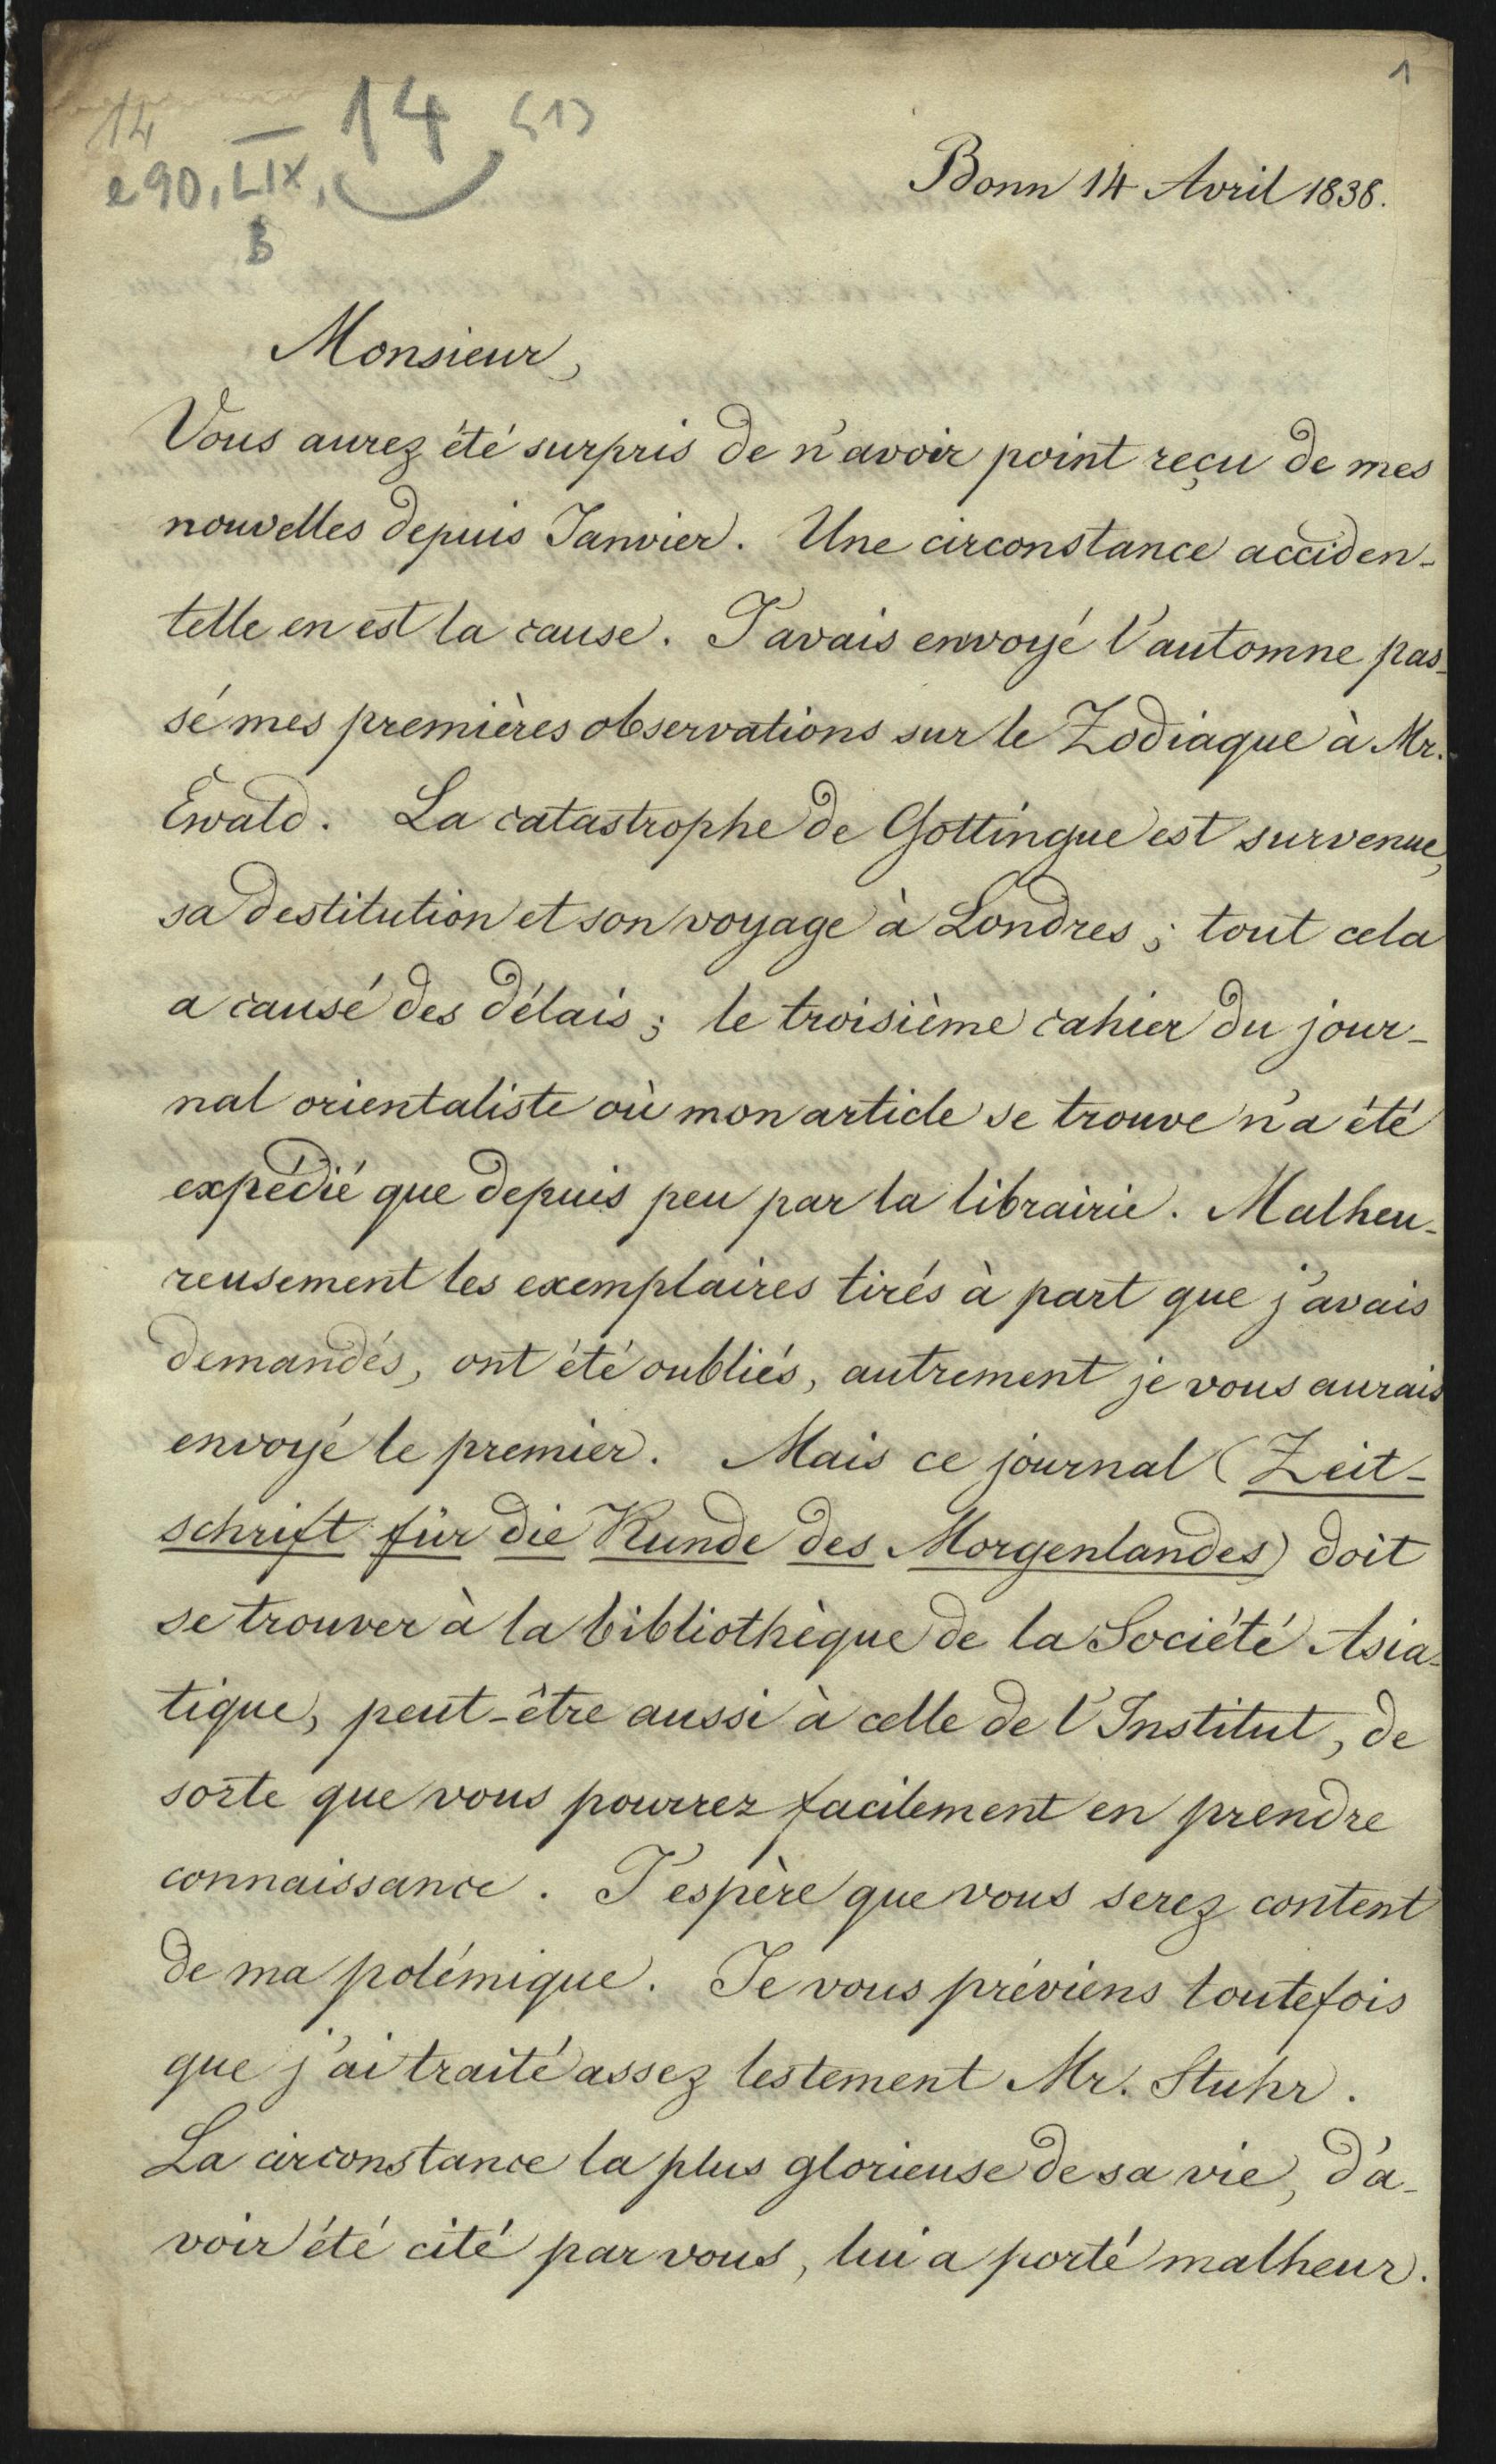 1
14 — 14 (1)
e 90, LIX,
B
Bonn 14 Avril 1838.
Monsieur,
Vous aurez été surpris de n'avoir point reçu de mes
nouvelles depuis Janvier. Une circonstance acciden-
telle en est la cause. J'avais envoyé l'automne pas-
sé mes premières observations sur le Zodiaque à Mr.
Ewald. La catastrophe de Gottingue est survenue,
sa destitution et son voyage à Londres; tout cela
a causé des délais; le troisième cahier du jour-
nal orientaliste où mon article se trouve n'a été
expédié que depuis peu par la librairie. Malheu-
reusement les exemplaires tirés à part que j'avais
demandés, ont été oubliés, autrement je vous aurais
envoyé le premier. Mais ce journal (Zeit-
schrift für die Kunde des Morgenlandes) doit
se trouver à la bibliothèque de la Société Asia-
tique, peut-être aussi à celle de l'Institut, de
sorte que vous pourrez facilement en prendre
connaissance. J'espère que vous serez content
de ma polémique. Je vous préviens toutefois
que j'ai traité assez lestement Mr. Stuhr.
La circonstance la plus glorieuse de sa vie, d'a-
voir été cité par vous, lui a porté malheur.